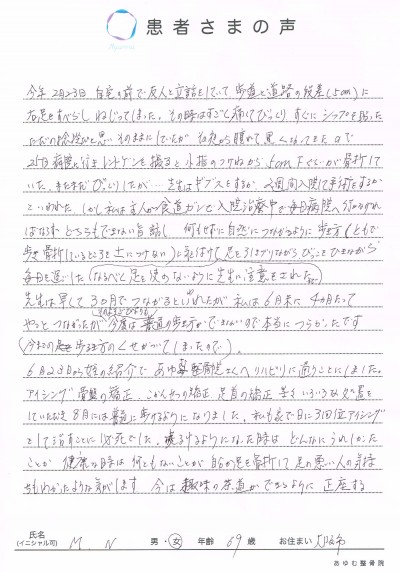 患者さまの声
今年2月23日 自宅の前で友人と立話をしていて 歩道と道路の段差(5cm)に
右足をすべらし ねじってしまった。その時はすごく痛くてびっくり すぐに シップを貼った
ただの捻挫と思い そのままにしていたが 腫れて黒くなってきたので
病院に行き レントゲンを撮ると 小指のつけねから 5cm下ぐらいが骨折して
いた。またまたびっくりしたが… 先生はギブスをするか 2週間入院して手術をするか
といわれた しかし私は主人が食道ガンで入院治療中で毎日病院へ行かなければ
ならず どちらもできない旨話し 何もせずに自然につながるように 歩き方(ともで
歩き 骨折しているところを土につけない)に気をつけて 足を引きずりながら びっこをひきながら
毎日を過ごした (なるべく足を使わないように先生に注意をされた)
先生は早くて3カ月でつながるといわれたが 私は6月末に 4カ月たって
やっとつながったが 今度は普通の歩き方ができないので本当につらかったです
(今までの歩き方のくせがついてしまったので)
6月23日から の紹介で あゆむ整骨院さんへリハビリに通うことにしました。
アイシング 骨盤の矯正、こんやの矯正 足首の矯正 等々 いろいろな処置を
していただき 8月には普通に歩けるようになりました。私も家で日に3回位アイシング
をして治すことに必死でした。歩けるようになった時は どんなにうれしかった
ことか 健康な時は何ともないことが 自分が足を骨折して 足の悪い人の気持
ちもわかったような気がします 今は趣味の茶道ができるように 正座する
氏名 (イニシャル可) M. N 男・女 年齢 69歳 お住まい 大阪市
あゆむ整骨院